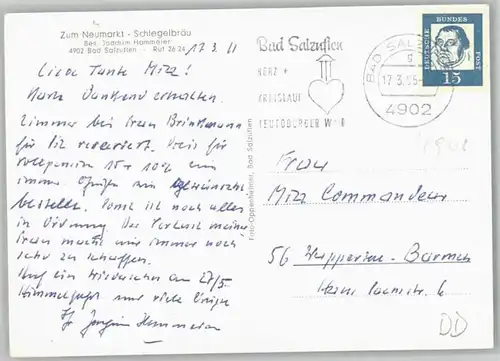 Zum Neumarkt - Schlegelbräu
Bes. Joachim Hammeier
4902 Bad Salzuflen - Ruf 26 24
Liebe Tante Mizz!
Karte dankend erhalten.
Zimmer bei Frau Brinkmann
für Sie reserviert. Preis für
Vollpension 15,- + 10%
immer.
bestellen. Sonst ist noch alles
in Ordnung. Der Verlust meiner
Frau macht mir immer noch
sehr zu schaffen.
Auf ein Wiedersehen am 27/5.
Himmelfahrt und viele Grüße
Ihr Joachim Hammeier
Foto-Oppenhäuser, Bad Salzuflen
Bad Salzuflen
HERZ +
KREISLAUF
TEUTOBURGER WALD
BAD SALZ
g
17.3.65
4902
DEUTSCHE BUNDES POST
15
Frau
Mizz Commandeur
56 Wuppertal-Barmen
Hans
DD